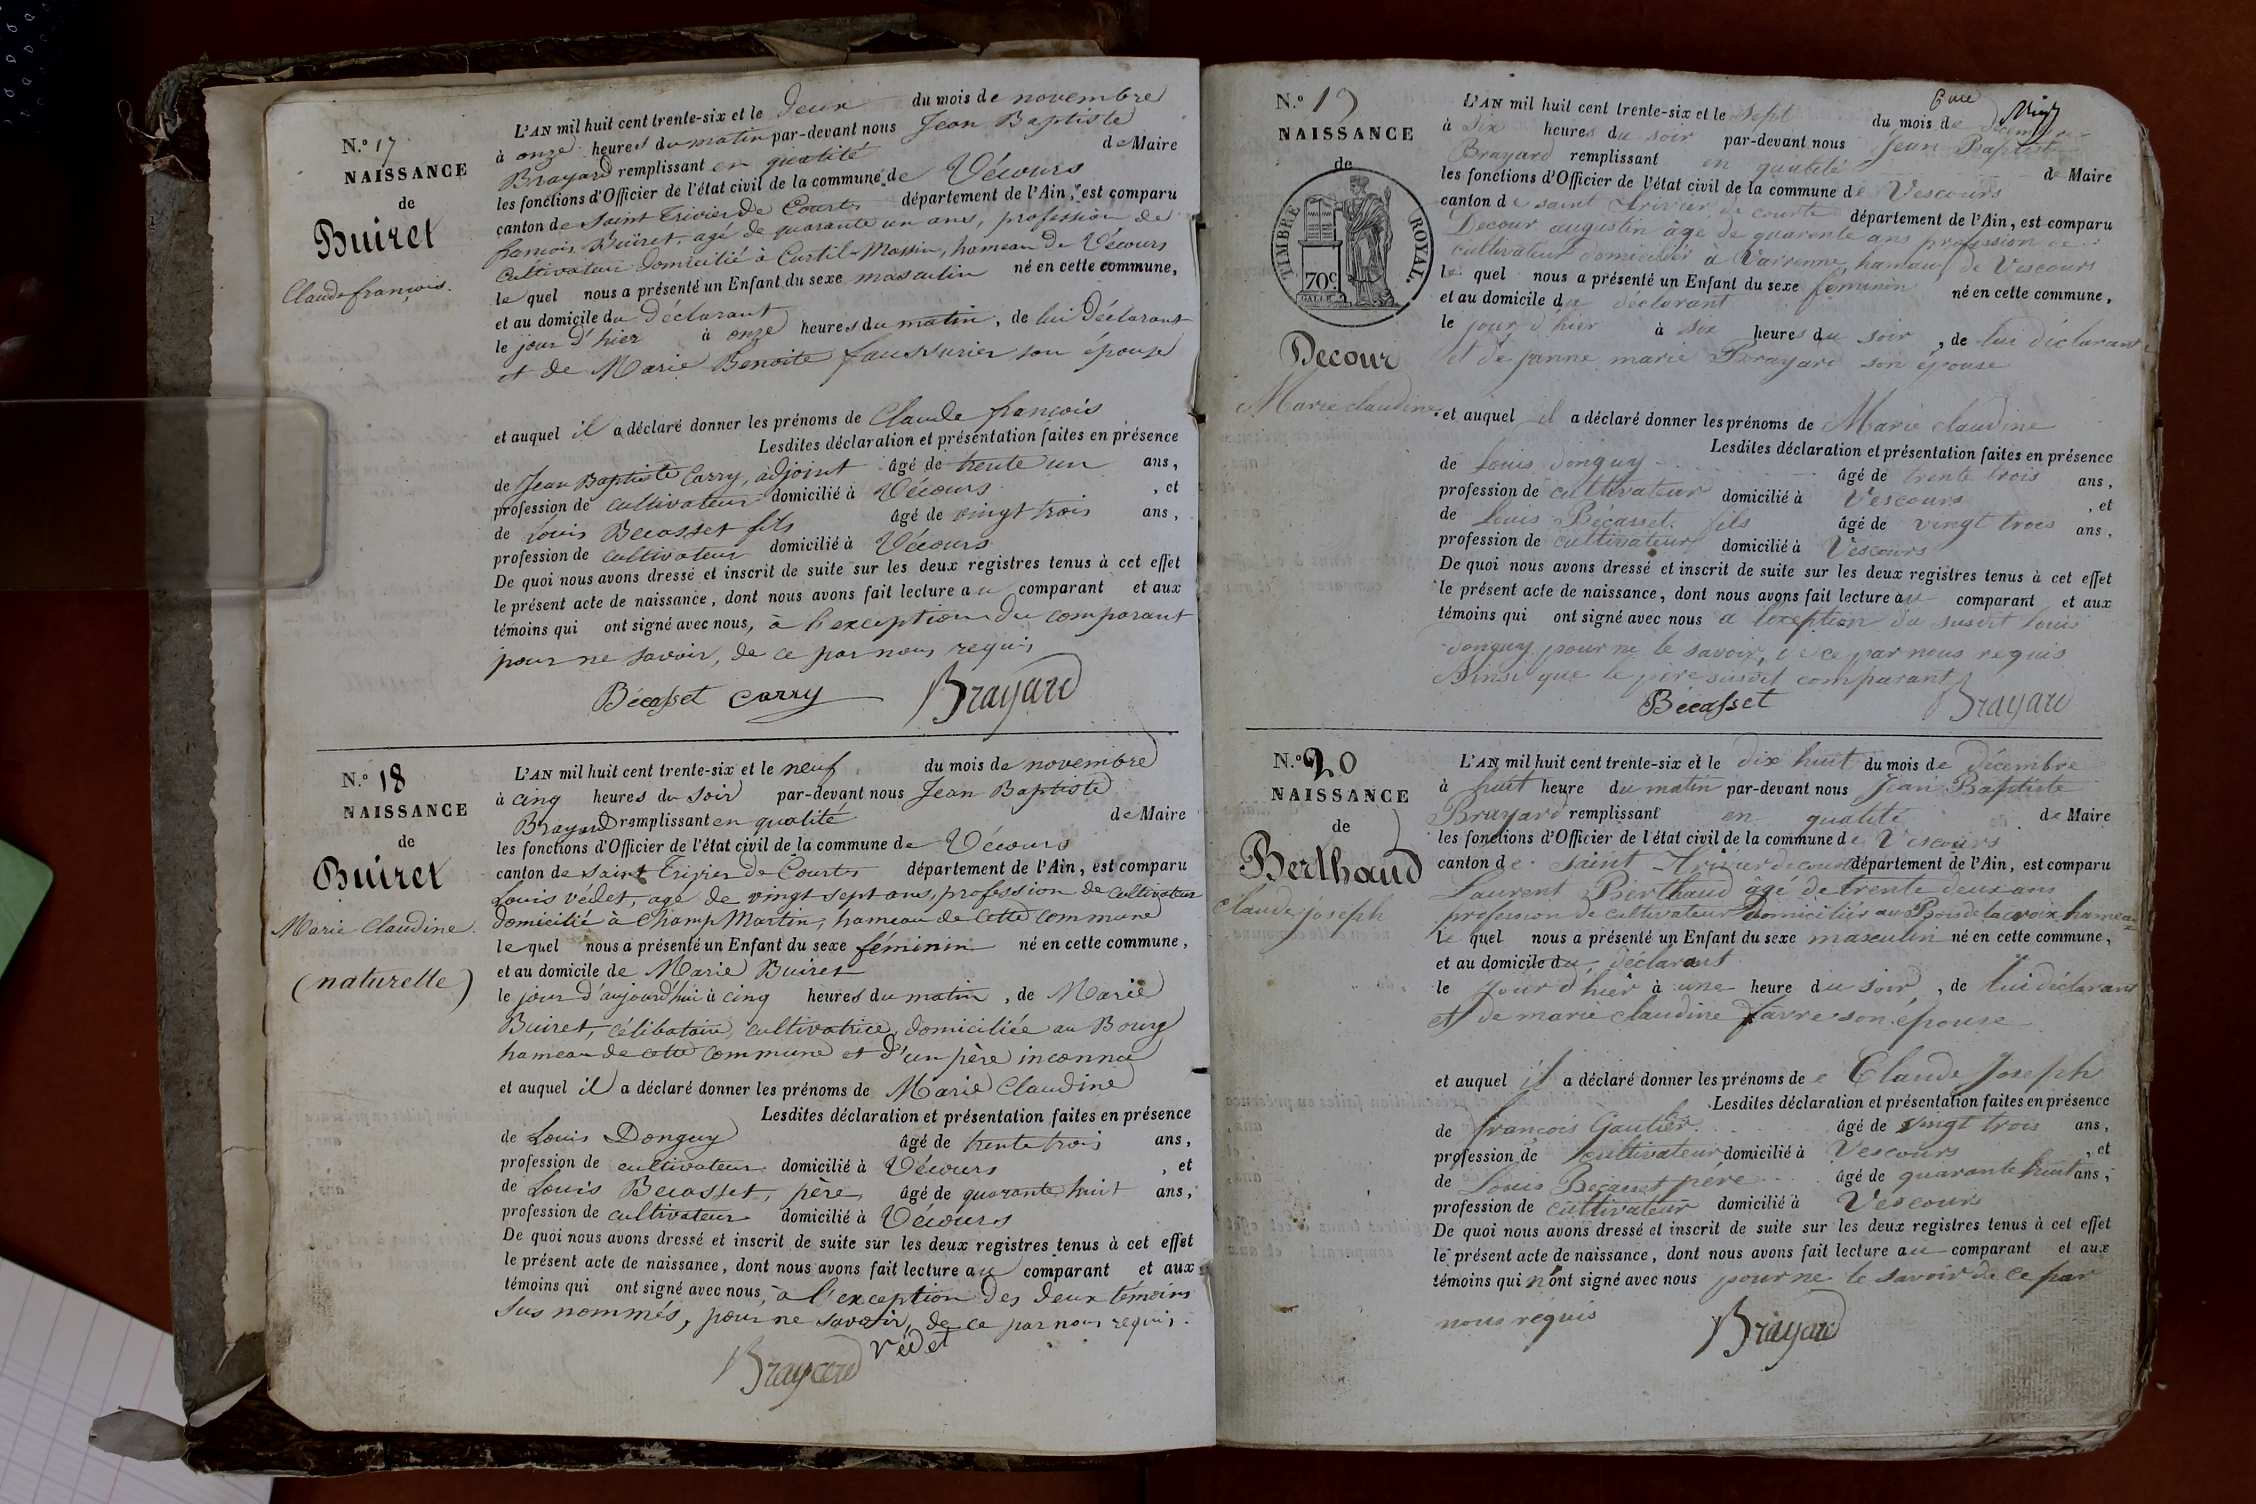 N.° 17
NAISSANCE
de
Buiret
Claude françois.
L'AN mil huit cent trente-six et le deux du mois de novembre
à onze heures du matin par-devant nous Jean Baptiste
Brayard remplissant en qualité de Maire
les fonctions d'Officier de l'état civil de la commune de Vécours
canton de Saint Trivier de Courtes département de l'Ain, est comparu
françois Buiret, agé de quarante un ans, profession de
Cultivateur domicilié à Curtil-Massin, hameau de Vécours
le quel nous a présenté un Enfant du sexe masculin né en cette commune,
et au domicile du déclarant
le jour d'hier à onze heures du matin, de lui déclarant
et de Marie Benoite faussurier son épouse
et auquel il a déclaré donner les prénoms de Claude françois
Lesdites déclaration et présentation faites en présence
de Jean Baptiste Carry, adjoint âgé de trente un ans,
profession de cultivateur domicilié à Vécours , et
de Louis Becasset fils âgé de vingt trois ans,
profession de cultivateur domicilié à Vécours
De quoi nous avons dressé et inscrit de suite sur les deux registres tenus à cet effet
le présent acte de naissance, dont nous avons fait lecture au comparant et aux
témoins qui ont signé avec nous, à l'exception du comparant
pour ne savoir, de ce par nous requis
Bécasset Carry Brayard
N.° 18
NAISSANCE
de
Buiret
Marie Claudine.
(naturelle)
L'AN mil huit cent trente-six et le neuf du mois de novembre
à cinq heures du soir par-devant nous Jean Baptiste
Brayard remplissant en qualité de Maire
les fonctions d'Officier de l'état civil de la commune de Vécours
canton de Saint Trivier de Courtes département de l'Ain, est comparu
Louis védet, age de vingt sept ans, profession de Cultivateur
domicilié à Champ Martin, hameau de cette commune
le quel nous a présenté un Enfant du sexe féminin né en cette commune,
et au domicile de Marie Buiret
le jour d'aujourd'hui à cinq heures du matin, de Marie
Buiret, célibataire, cultivatrice, domiciliée au Bourg
hameau de cette commune et d'un père inconnu
et auquel il a déclaré donner les prénoms de Marie Claudine
Lesdites déclaration et présentation faites en présence
de Louis Donguy âgé de trente trois ans,
profession de cultivateur domicilié à Vécours , et
de Louis Becasset, père, âgé de quarante huit ans,
profession de cultivateur domicilié à Vécours
De quoi nous avons dressé et inscrit de suite sur les deux registres tenus à cet effet
le présent acte de naissance, dont nous avons fait lecture au comparant et aux
témoins qui ont signé avec nous, à l'exception des deux témoins
sus nommés, pour ne savoir, de ce par nous requis.
Brayard védet
N.° 19
NAISSANCE
de
TIMBRE ROYAL.
70c
Decour
Marie claudine
L'AN mil huit cent trente-six et le sept du mois de décembre
à dix heures du soir par-devant nous Jean Baptiste
Brayard remplissant en qualité de Maire
les fonctions d'Officier de l'état civil de la commune de Vescours
canton de saint Trivier de courte département de l'Ain, est comparu
Decour augustin âgé de quarente ans profession de
cultivateur domicilié à Varienne, hamau de Vescours
le quel nous a présenté un Enfant du sexe féminin né en cette commune,
et au domicile du déclarant
le jour d'hier à six heures du soir, de lui déclarant
et de janne marie Brayard son épouse
et auquel il a déclaré donner les prénoms de Marie claudine
Lesdites déclaration et présentation faites en présence
de Louis donguy âgé de trente trois ans,
profession de cultivateur domicilié à Vescours , et
de Louis Bécasset fils âgé de vingt trois ans,
profession de cultivateur domicilié à Vescours
De quoi nous avons dressé et inscrit de suite sur les deux registres tenus à cet effet
le présent acte de naissance, dont nous avons fait lecture au comparant et aux
témoins qui ont signé avec nous a l'exeption du susdit Louis
donguy pour ne le savoir, de ce par nous requis
Ainsi que le père susdit comparant
Bécasset Brayard
N.° 20
NAISSANCE
de
Berthaud
claude joseph
L'AN mil huit cent trente-six et le dix huit du mois de décembre
à huit heure du matin par-devant nous Jean Baptiste
Brayard remplissant en qualité de Maire
les fonctions d'Officier de l'état civil de la commune de Vescours
canton de Saint Trivier de courte département de l'Ain, est comparu
Laurent Berthaud âgé de trente deux ans
profession de cultivateur domicilié au Bois de la croix hameau
le quel nous a présenté un Enfant du sexe masculin né en cette commune,
et au domicile du déclarant
le jour d'hièr à une heure du soir, de lui déclarant
et de marie claudine favre son épouse
et auquel il a déclaré donner les prénoms de Claude Joseph
Lesdites déclaration et présentation faites en présence
de françois Gautier âgé de vingt trois ans,
profession de cultivateur domicilié à Vescours , et
de Louis Becasset père âgé de quarante huit ans,
profession de cultivateur domicilié à Vescours
De quoi nous avons dressé et inscrit de suite sur les deux registres tenus à cet effet
le présent acte de naissance, dont nous avons fait lecture au comparant et aux
témoins qui n'ont signé avec nous pour ne le savoir de ce par
nous requis
Brayard